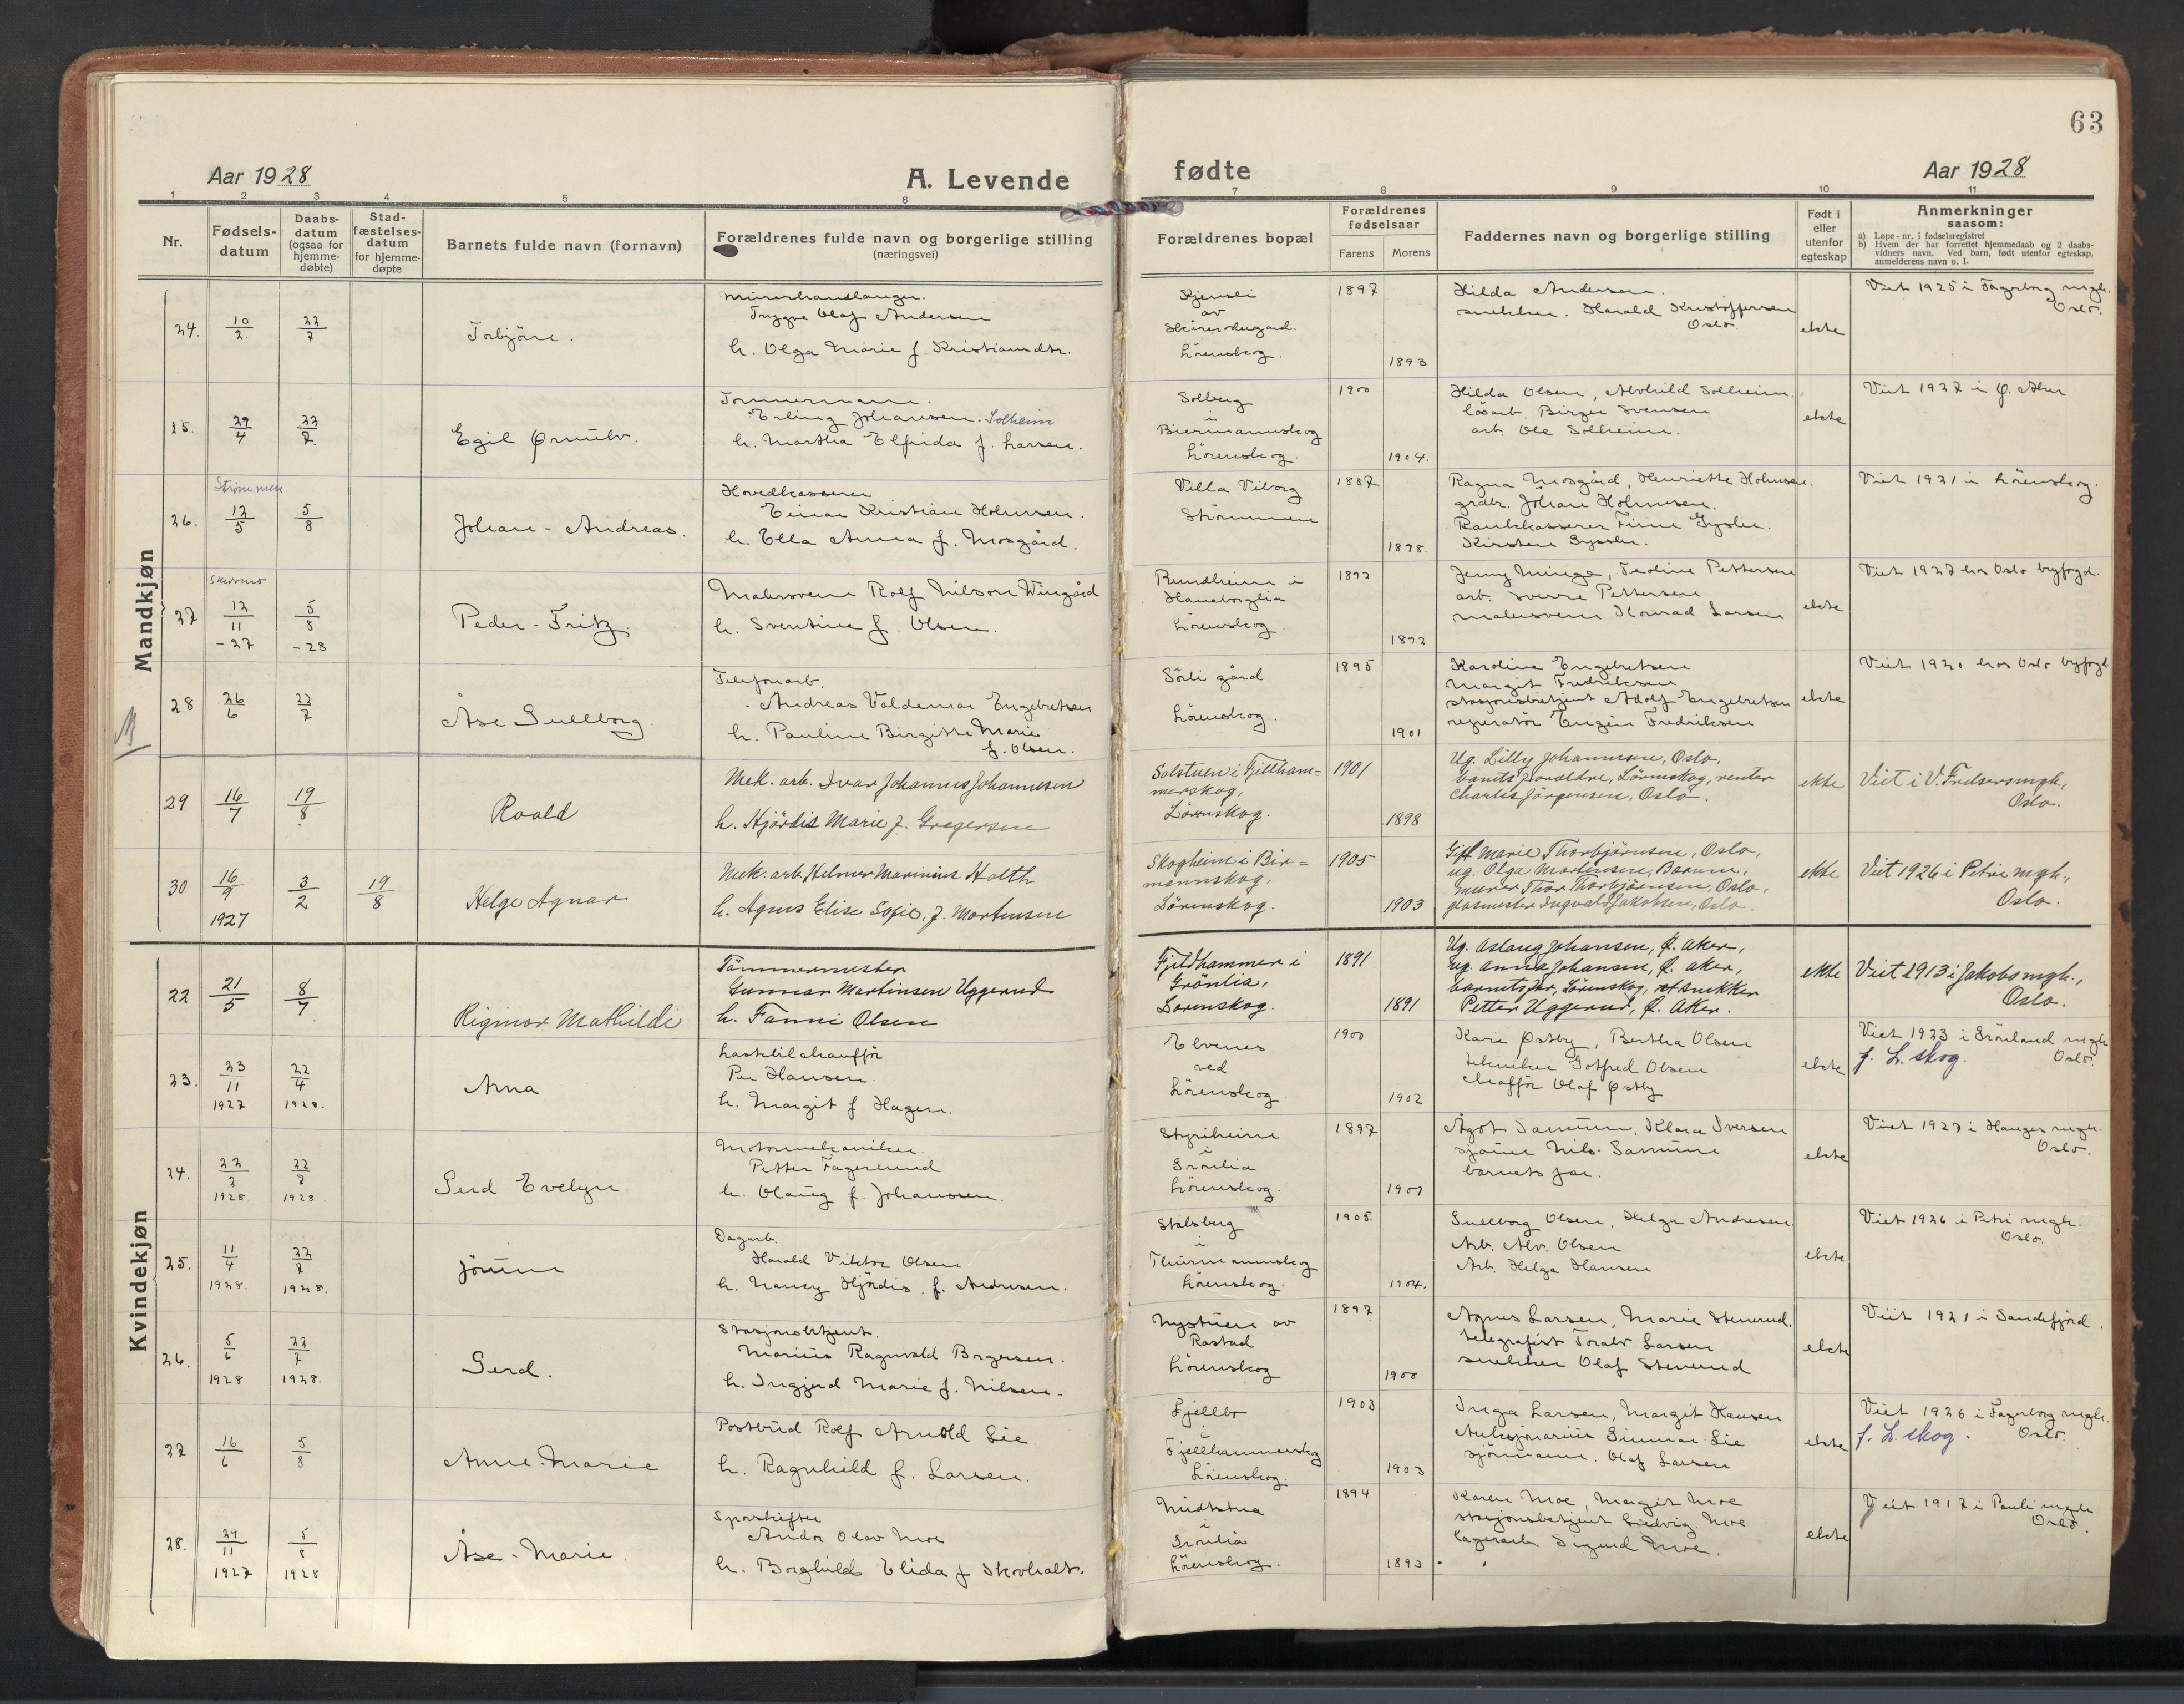 63
Aar 1928
A. Levende
fødte
Aar 1928
1 2 3 4 5 6 7 8 9 10 11
Nr.
Fødsels-
datum
Daabs-
datum
(ogsaa for
hjemme-
døbte)
Stad-
fæstelses-
datum
for hjemme-
døpte
Barnets fulde navn (fornavn)
Forældrenes fulde navn og borgerlige stilling
(næringsvei)
Forældrenes bopæl
Forældrenes
fødselsaar
Farens Morens
Faddernes navn og borgerlige stilling
Født i
eller
utenfor
egteskap
Anmerkninger
saasom:
a) Løpe-nr. i fødselsregistret
b) Hvem der har forrettet hjemmedaab og 2 daabs-
vidners navn. Ved barn, født utenfor egteskap,
anmelderens navn o. l.
Mandkjøn
24. 10/2. 22/7 Torbjörn.
Murerhandlanger.
Trygve Olaf Andersen
h. Olga Marie f. Kristiansdtr.
Kjensli
av
Lörenskog.
1897
1893
Hilda Andersen.
snekker. Harald Kristoffersen
Oslo.
ekte
Viet 1925 i Fagerborg mgh.
Oslo.
25. 29/4 22/7. Egil Ørnulv.
Tömmermann.
Erling Johansen. Solheim
h. Martha Elfrida f. Larsen.
Solberg
i
Biermannskog
Lörenskog.
1900
1904.
Hilda Olsen, Alvhild Solheim.
lösarb. Birger Svensen
arb. Ole Solheim.
ekte
Viet 1927 i Ø. Aker
Strömmen
26. 12/5 5/8 Johan-Andreas.
Hovedkasserer
Einar Kristian Holmsen.
h. Ella Anna f. Mosgård.
Villa Viborg
Strömmen
1887
1898.
Ragna Mosgård, Henriette Holmsen.
grdbr. Johan Holmsen.
Bankkasserer Finn Gysler.
Kirsten Gysler.
Viet 1921 i Lörenskog.
Skedsmo
27 12/11 -27 5/8 -28 Peder-Fritz.
Malersvenn Rolf Nilson Wingård
h. Sventine f. Olsen.
Rundheim i
Haneborglia
Lörenskog.
1892
1892
Jenny Minge, Teoline Pettersen
arb. Sverre Pettersen
malersvenn Konrad Larsen
ekte
Viet 1927 hos Oslo byfogd.
28 26/6 22/7 Åse Gullborg.
Telefonarb.
Andreas Valdemar Engebretsen
h. Pauline Birgitte Marie
f. Olsen.
Sörli gård
Lörenskog.
1895
1901
Karoline Engebretsen
Margit Fredriksen
stasjonsbetjent Adolf Engebretsen
reperatör Eugen Fredriksen
ekte
Viet 1920 hos Oslo byfogd
29 16/7 19/8. Roald
Mek. arb. Ivar Johannes Johannesen
h. Hjördis Marie f. Gregersen
Solstuen i Fjellham-
merskog,
Lörenskog.
1901
1898
Ug. Lilly Johannesen, Oslo,
barnets foreldre, Lörenskog, rentier
Charles Jörgensen, Oslo.
ekte
Viet i V. Frelsers mgh.,
Oslo.
30 16/9 1927 3/2 19/8 Helge Agnar
Mek. arb. Helmer Marinius Holth
h. Agnes Elise Sofie, f. Mortensen
Skogheim i Bir-
mannskog,
Lörenskog.
1905
1903
Gift Marie Thorbjörnsen, Oslo,
ug. Olga Mortensen, Bærum,
murer Thor Thorbjörnsen, Oslo,
glasmester Ingvald Jakobsen, Oslo.
ekte
Viet 1926 i Petri mgh.,
Oslo.
Kvindekjøn
22 21/5 8/7 Rigmor Mathilde
Tömmermester
Gunnar Martinsen Uggerud
h. Fanni Olsen
Fjeldhammer i
Grönlia,
Lörenskog.
1891
1891
Ug. Aslaug Johansen, Ø. Aker,
ug. Anna Johansen, Ø. Aker,
barnets far, Lörenskog, snekker
Petter Uggerud, Ø. Aker.
ekte
Viet 1913 i Jakobs mgh.,
Oslo.
23. 23/11 1927 22/4 1928. Arna
Lastebilchaufför
Per Hansen.
h. Margit f. Hagen.
Elvenes
ved
Lörenskog.
1900
1902
Kari Østby, Bertha Olsen
tekniker Gotfred Olsen
chafför Olaf Østby
ekte
Viet 1923 i Grönland mgh.
f. L. skog. Oslo.
24. 22/2 1928. 22/7 1928. Gerd Evelyn.
Motormekaniker.
Petter Fagerlund
h. Olaug f. Johansen.
Styriheim
i
Grönlia
Lörenskog.
1897
1901
Ågot Samuen, Klara Iversen
barnets far.
ekte
Viet 1927 i Hauges mgh.
Oslo.
25. 11/4 1928. 22/7 1928. Jörunn
Dagarb.
Harald Viktor Olsen
h. Nancy Hjördis, f. Andresen.
Stalsberg
i
Thurmannskog
Lörenskog.
1905.
1904.
Gullborg Olsen, Helga Andresen.
Arb. Alv. Olsen
Arb. Helge Hansen
ekte
Viet 1926 i Petri mgh.
Oslo.
26. 5/6 1928 22/7 1928. Gerd.
Stasjonsbetjent.
Marius Ragnvald Borgersen.
h. Ingjerd Marie f. Nilsen.
Nystuen av
Rastad
Lörenskog
1897
1900
Agnes Larsen, Marie Stenerud.
telegrafist Toralv Larsen
snekker Olaf Stenerud
ekte
Viet 1921 i Sandefjord.
27 16/6 5/8 Anne-Marie
Postbud Rolf Arnold Lie
h. Ragnhild f. Larsen.
Fjellbo
i
Fjellhammerskog
Lörenskog.
1903
1903
Inga Larsen, Margit Hansen
Auksjonarius Gunnar Lie
sjömann. Olaf Larsen
ekte
Viet 1926 i Fagerborg mgh.
f. L. skog. Oslo.
28. 24/11 1927 5/8 1928 Åse-Marie.
Sporskifter
Andor Olav Moe
h. Borghild Elida f Skovholt.
Midtstua
i
Grönlia
Lörenskog.
1894
1893
Karen Moe, Margit Moe
stasjonsbetjent Ludvig Moe
lagerarb. Sigurd Moe.
ekte
Viet 1917 i Pauli mgh
Oslo.